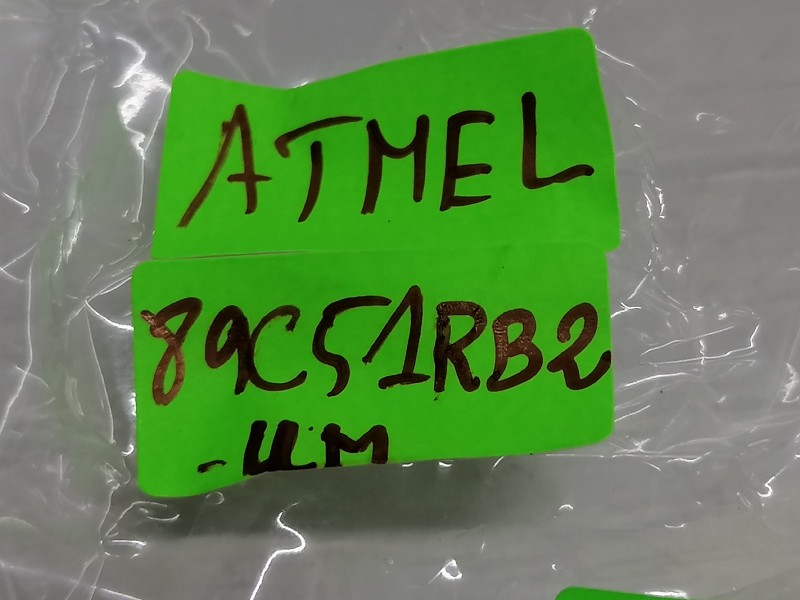 ATMEL
89C51RB2
-UM